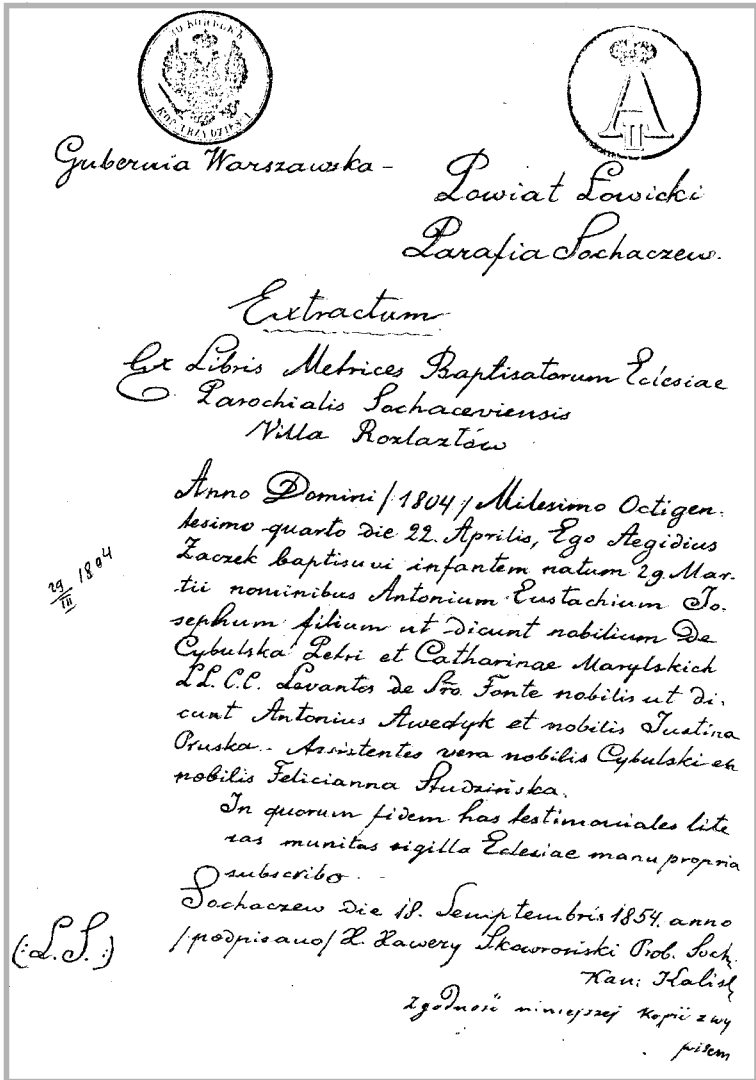 30 КОПѢЕКЪ
KOP. TRZYDZIEŚCI
A II
Gubernia Warszawska -
Powiat Łowicki
Parafia Sochaczew.
Extractum
Ex Libris Metrices Baptisatorum Eclesiae
Parochialis Sochaceviensis
Villa Rozlazłów
Anno Domini /1804/ Milesimo Octigen-
tesimo quarto die 22. Aprilis, Ego Aegidius
Zaczek baptisavi infantem natum 29 Mar-
tii nominibus Antonium Eustachium Jo-
sephum filium ut dicunt nobilium De
Cybulska Petri et Catharinae Marylskich
LL. C.C. Levantes de Sro. Fonte nobilis ut di-
cunt Antonius Awedyk et nobilis Justina
Pruska. - Assistentes vera nobilis Cybulski et
nobilis Felicianna Studzińska.
29/III 1804
In quorum fidem has testimoniales lite
ras munitas sigilla Eclesiae manu propria
subscribo.
Sochaczew die 18. Semptembris 1854. anno
/podpisano/ X. Xawery Skoworoński Prob. Soch.
Kan: Kalisk
(:L.S.:)
Zgodność niniejszej kopii z wy
pisem